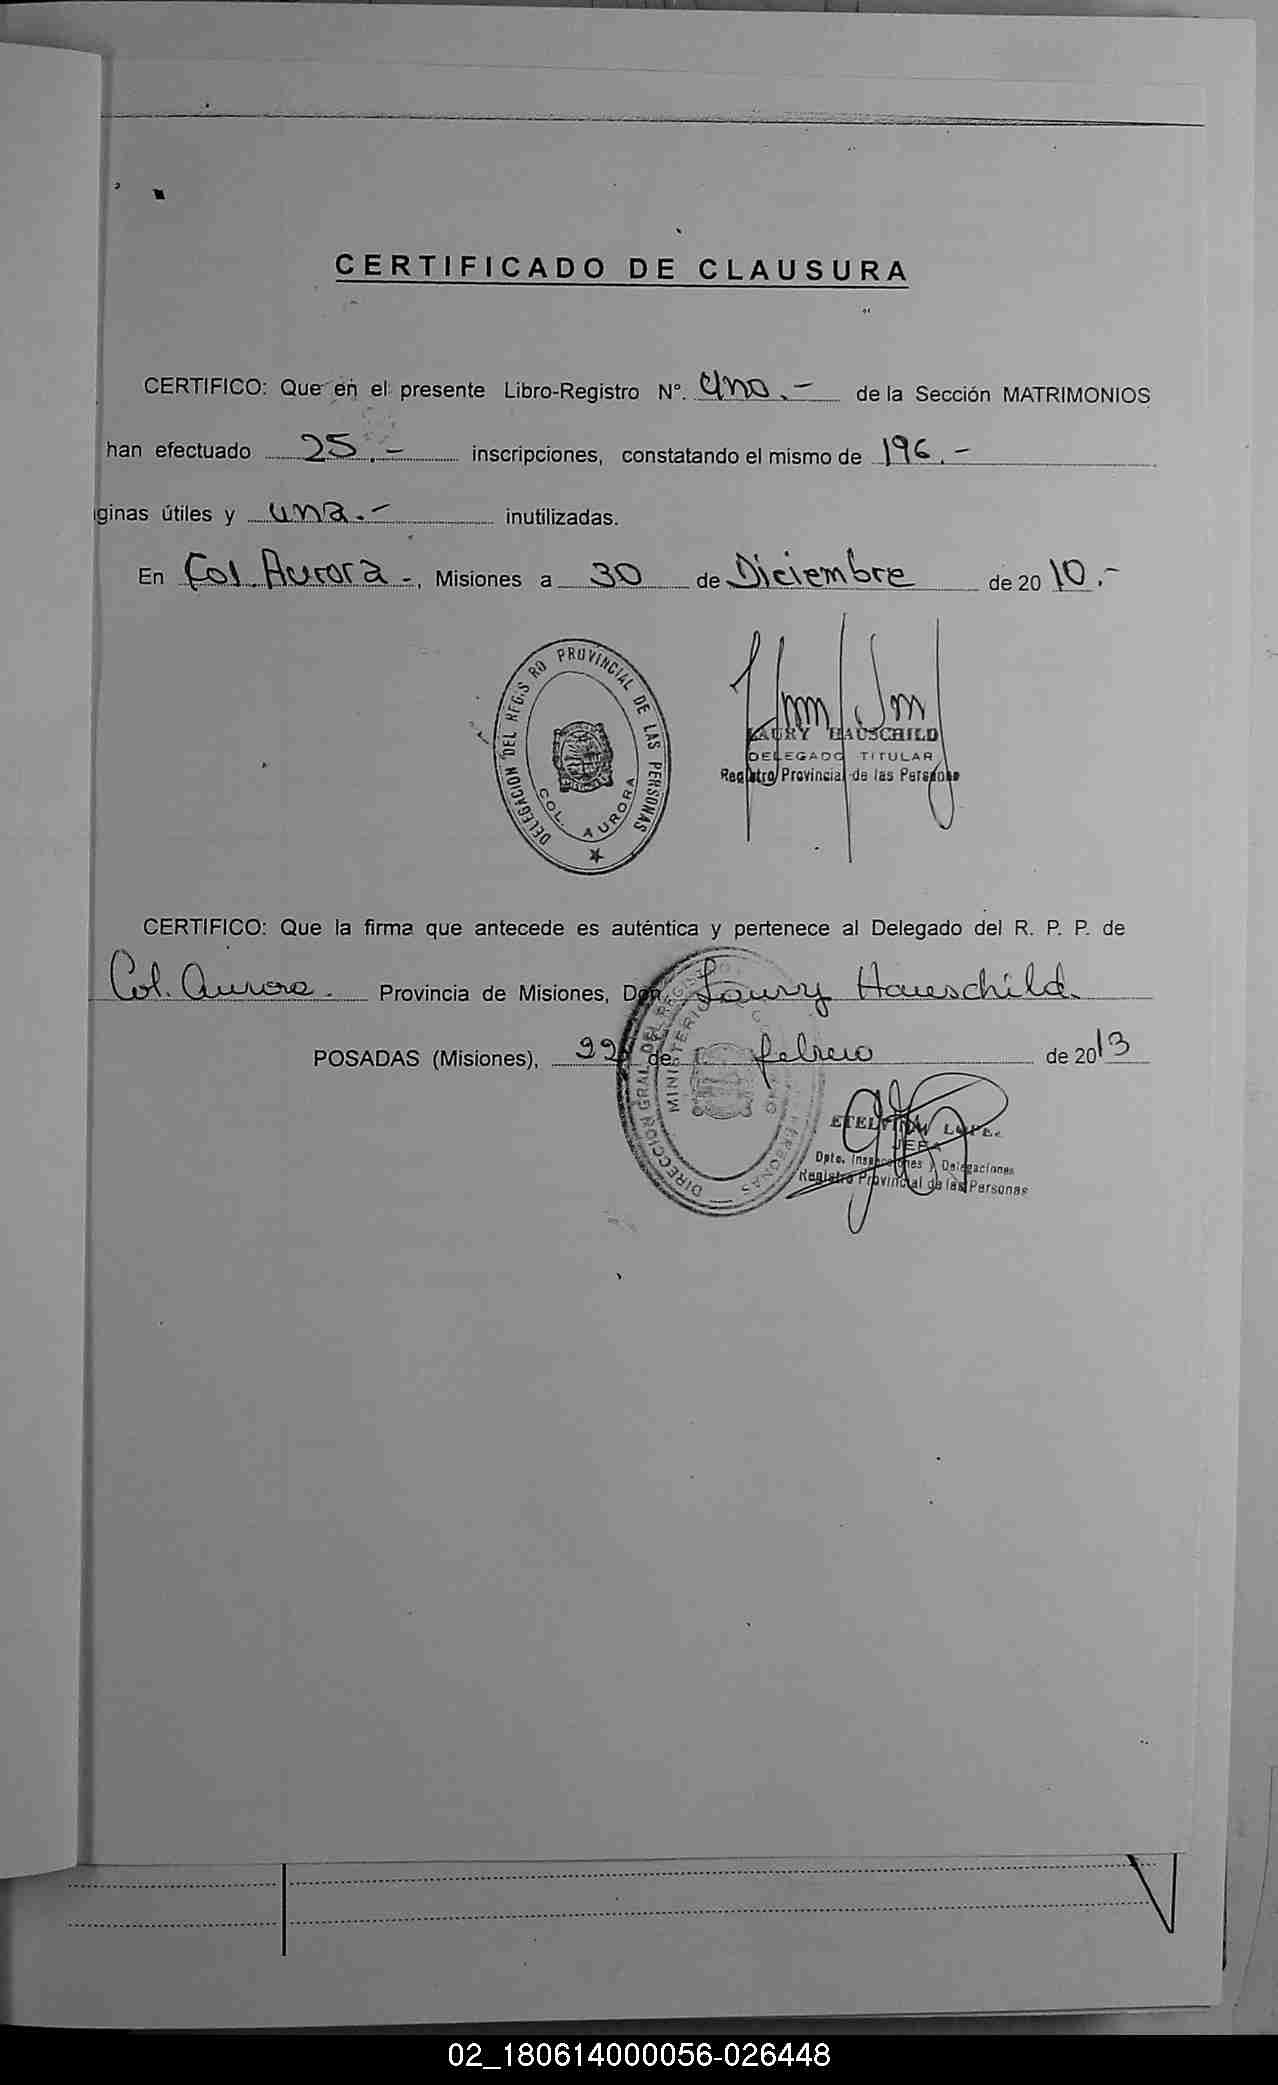 CERTIFICADO DE CLAUSURA
CERTIFICO: Que en el presente Libro-Registro N°. Uno.- de la Sección MATRIMONIOS
han efectuado 25.- inscripciones, constatando el mismo de 196.-
ginas útiles y una.- inutilizadas.
En Col. Aurora-, Misiones a 30 de Diciembre de 2010.-
DELEGACION DEL REGIS RO PROVINCIAL DE LAS PERSONAS
COL. AURORA
LAURY HAUSCHILD
DELEGADO TITULAR
Registro Provincial de las Personas
CERTIFICO: Que la firma que antecede es auténtica y pertenece al Delegado del R. P. P. de
Col. Aurora. Provincia de Misiones, Don Laury Hauschild.
POSADAS (Misiones), 22 de febrero de 2013
DIRECCION GRAL. DEL REGISTRO PERSONAS
MINISTERIO
ETELVINA LOPEZ
JEFA
Dpto. Inspecciones y Delegaciones
Registro Provincial de las Personas
02_180614000056-026448